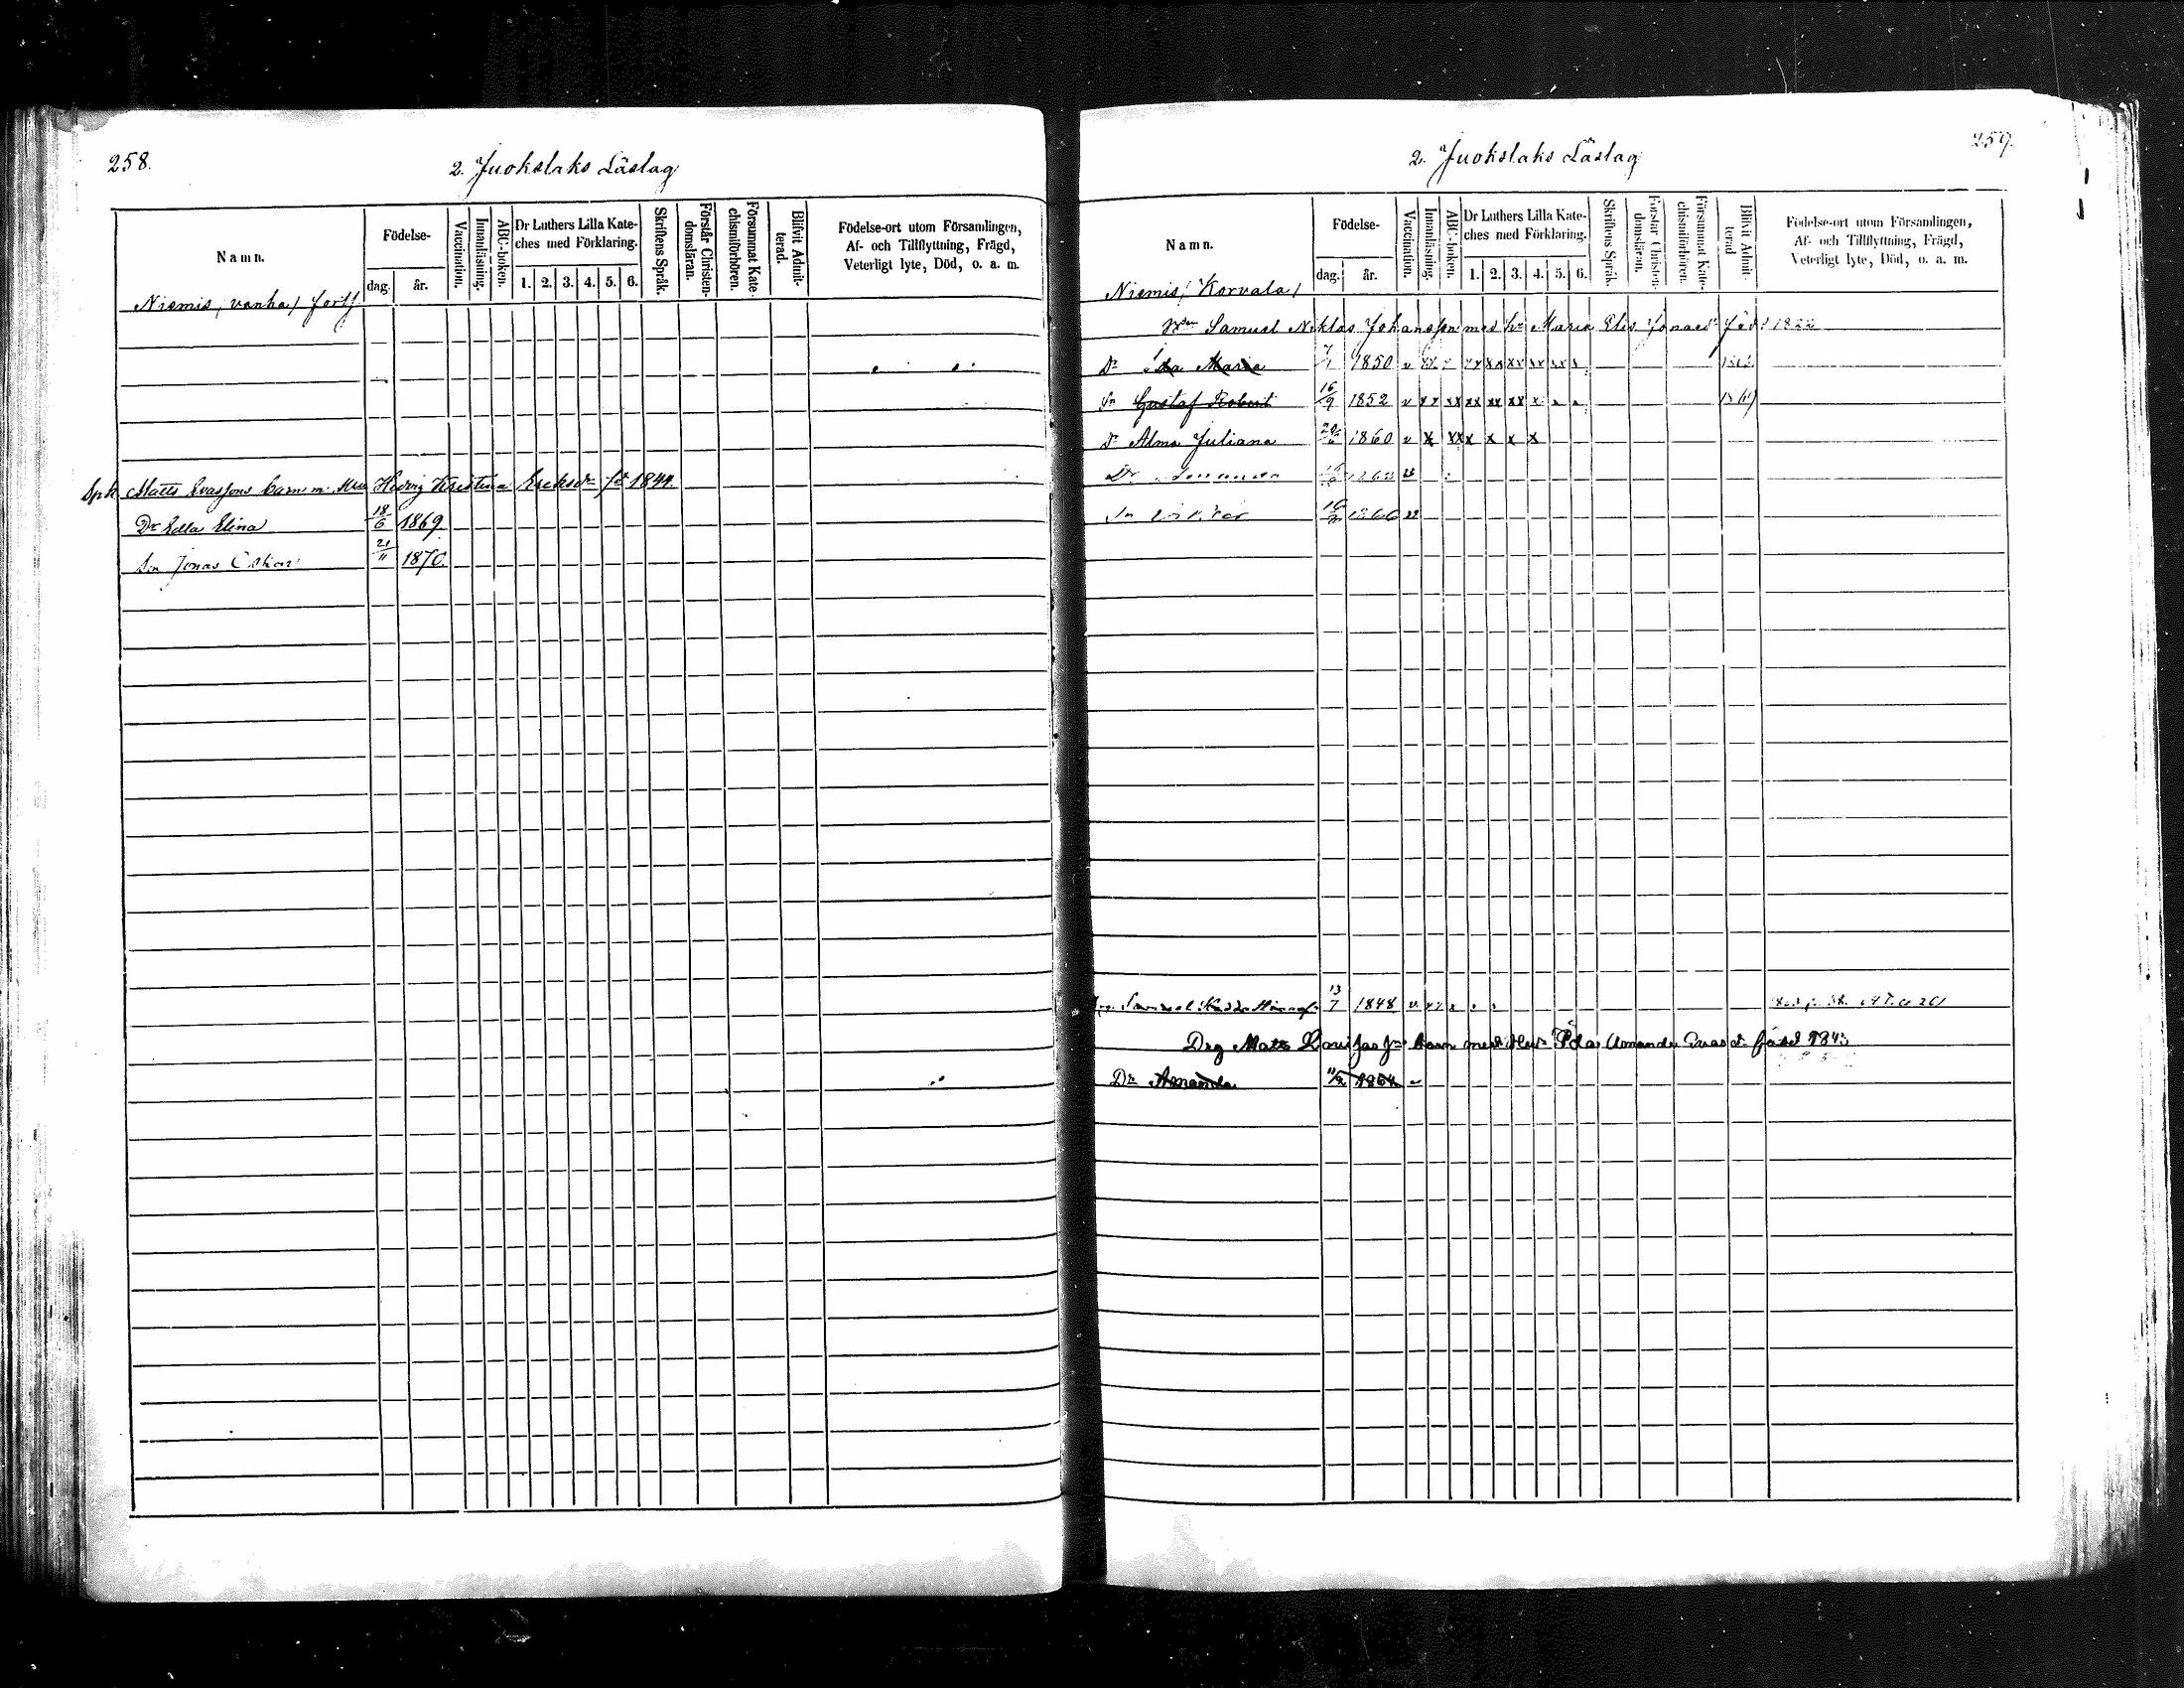 258.
2. Juokslaks Läslag
Namn.
Födelse-
dag.
år.
Vaccination.
Innanläsning.
ABC-boken.
Dr Luthers Lilla Kate-
ches med Förklaring.
1. 2. 3. 4. 5. 6.
Skriftens Språk.
Förstår Christen-
domsläran.
Försummat Kate-
chismiförhören.
Blifvit Admit-
terad.
Födelse-ort utom Församlingen,
Af- och Tillflyttning, Frägd,
Veterligt lyte, Död, o. a. m.
Niemis, vanha/ forts
Matts Evassons barn m. Hedvig Kristina Ericksdr fd 1844
Dr Edla Elina 18/6 1869
Son Jonas Oskar 21/11 1870.
259.
2. Juokslaks Läslag
Namn.
Födelse-
dag.
år.
Vaccination.
Innanläsning.
ABC-boken.
Dr Luthers Lilla Kate-
ches med Förklaring.
1. 2. 3. 4. 5. 6.
Skriftens Språk.
Förstår Christen-
domsläran.
Försummat Kate-
chismiförhören.
Blifvit Admit-
terad
Födelse-ort utom Församlingen,
Af- och Tillflyttning, Frägd,
Veterligt lyte, Död, o. a. m.
Niemis/ Korvala/
Samuel Niklas Johansson med Maria Elis Jonaedr född 1822
Dr Ida Maria 1850 v xx
Sn Gustaf Robert 16/9 1852 v xx xx xx xx xx x x x
Dr Alma Juliana 1860 v x xx x x x x
Dr
Sn Viktor 1866
Samuel 13/7 1848 v. xx x
Drg Mats barn med Ida Amanda född 1843
Dr Amanda 11/2 1864 v